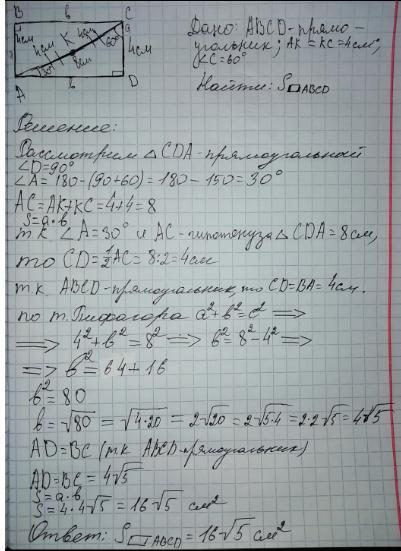 B в C
4см 4см K 4см 60° а 4см
30° 8см
A в D
Дано: ABCD - прямо-
угольник; AK = KC = 4см;
∠C = 60°
Найти: S▭ABCD
Решение:
Рассмотрим △ CDA - прямоугольный
∠D = 90°
∠A = 180 - (90 + 60) = 180 - 150 = 30°
AC = AK + KC = 4 + 4 = 8
S = a · b
т.к ∠A = 30° и AC - гипотенуза △ CDA = 8см,
то CD = ½ AC = 8 : 2 = 4см
т.к. ABCD - прямоугольник, то CD = BA = 4см.
по т. Пифагора a² + b² = c² ⟹
⟹ 4² + b² = 8² ⟹ b² = 8² - 4² ⟹
⟹ b² = 64 + 16
b² = 80
b = √80 = √4·20 = 2√20 = 2√5·4 = 2·2√5 = 4√5
AD = BC (т.к ABCD - прямоугольник)
AD = BC = 4√5
S = a · b
S = 4 · 4√5 = 16√5 см²
Ответ: S▭ABCD = 16√5 см²